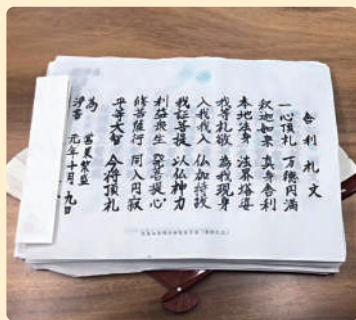 舎利礼文
一心頂礼 万徳円満
釈迦如来 真身舎利
本地法身 法界塔婆
我等礼敬 為我現身
入我我入 仏加持故
我証菩提 以仏神力
利益衆生 発菩提心
修菩薩行 同入円寂
平等大智 今将頂礼
為
元年十月 九日